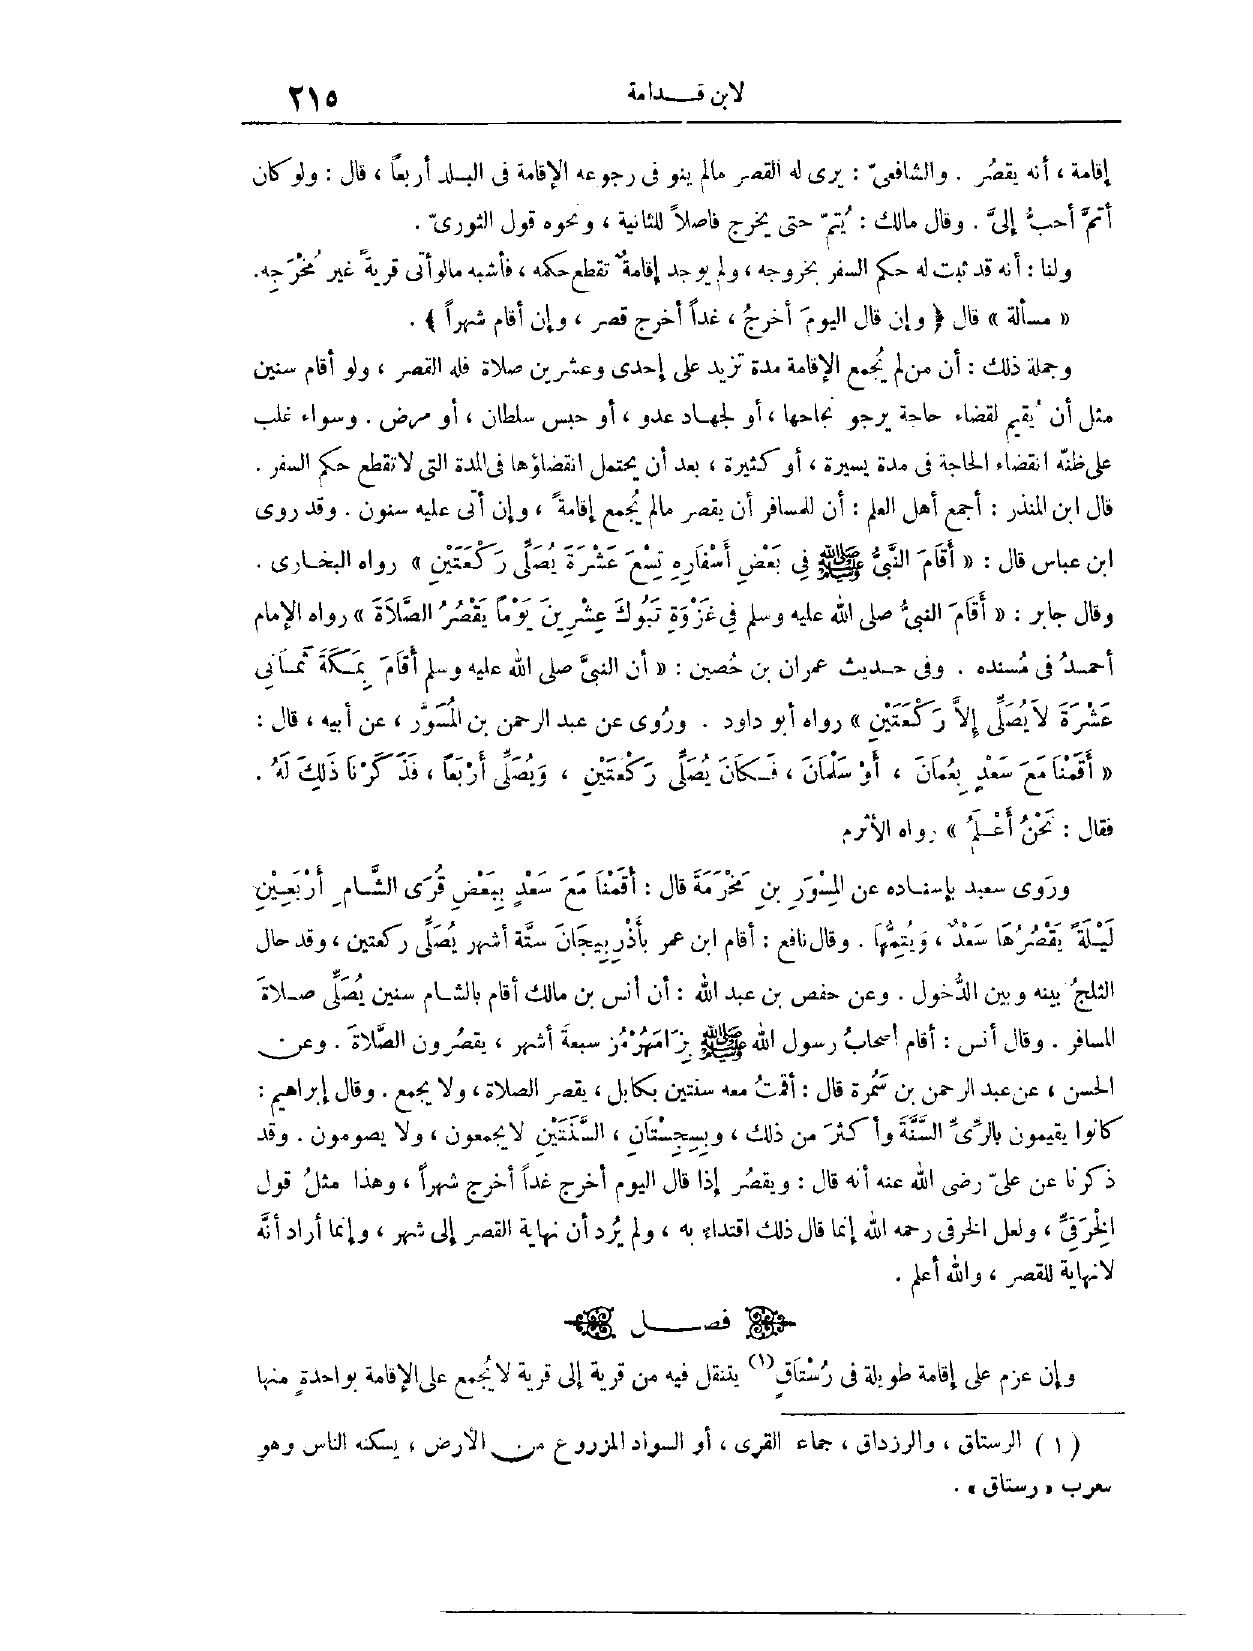 لابن قــدامة ٢١٥
إقامة ، أنه يقصُر . والشافعىّ : يرى له القصر مالم ينو فى رجوعه الإقامة فى البلد أربعاً ، قال : ولو كان
أتمَّ أحبُّ إلىَّ . وقال مالك : يُتمّ حتى يخرج فاصلاً للثانية ، ونحوه قول الثورىّ .
ولنا : أنه قد ثبت له حكم السفر بخروجه ، ولم يوجد إقامةٌ تقطع حكمه ، فأشبه مالو أتى قريةً غير مُخْرَجِه.
« مسألة » قال ﴿ وإن قال اليومَ أخرجُ ، غداً أخرج قصر ، وإن أقام شهراً ﴾ .
وجملة ذلك : أن من لم يُجمع الإقامة مدة تزيد على إحدى وعشرين صلاة فله القصر ، ولو أقام سنين
مثل أن يُقيم لقضاء حاجة يرجو نجاحها ، أو لجهاد عدو ، أو حبس سلطان ، أو مرض . وسواء غلب
على ظنّه انقضاء الحاجة فى مدة يسيرة ، أو كثيرة ، بعد أن يحتمل انقضاؤها فى المدة التى لاتقطع حكم السفر .
قال ابن المنذر : أجمع أهل العلم : أن للمسافر أن يقصر مالم يُجمع إقامةً ، وإن أتى عليه سنون . وقد روى
ابن عباس قال : « أَقَامَ النَّبِىُّ ﷺ فِى بَعْضِ أَسْفَارِهِ تِسْعَ عَشْرَةَ يُصَلِّى رَكْعَتَيْنِ » رواه البخارى .
وقال جابر : « أَقَامَ النبىُّ صلى الله عليه وسلم فِى غَزْوَةِ تَبُوكَ عِشْرِينَ يَوْماً يَقْصُرُ الصَّلَاةَ » رواه الإمام
أحمـدُ فى مُسنده . وفى حـديث عمران بن حُصين : « أن النبىَّ صلى الله عليه وسلم أَقَامَ بِمَكَّةَ ثَمَـانِى
عَشْرَةَ لاَ يُصَلِّى إِلاَّ رَكْعَتَيْنِ » رواه أبو داود . ورُوى عن عبد الرحمن بن المُسَوَّر ، عن أبيه ، قال :
« أَقَمْنَا مَعَ سَعْدٍ بِعُمَانَ ، أَوْ سَلْمَانَ ، فَـكَانَ يُصَلِّى رَكْعَتَيْنِ ، وَيُصَلِّى أَرْبَعاً ، فَذَكَرْنَا ذَلِكَ لَهُ .
فقال : نَحْنُ أَعْـلَمُ » رواه الأثرم
ورَوى سعيد بإسنـاده عن المِسْوَرِ بنِ مَخْرَمَةَ قال : أَقَمْنَا مَعَ سَعْدٍ بِبَعْضِ قُرَى الشَّـامِ أَرْبَعِـينَ
لَيْـلَةً يَقْصُرُهَا سَعْدٌ ، وَيُتِمُّهَا . وقال نافع : أقام ابن عمر بأَذْرِبِيجَانَ ستَّة أشهر يُصَلِّى ركعتين ، وقد حال
الثلجُ بينه وبين الدُّخول . وعن حفص بن عبد الله : أن أنس بن مالك أقام بالشام سنين يُصَلِّى صـلاةَ
المسافر . وقال أنس : أقام أصحابُ رسول الله ﷺ بِرَامَهُرْمُز سبعةَ أشهر ، يقصُرون الصَّلاةَ . وعن
الحسن ، عن عبد الرحمن بن سَمُرة قال : أقمتُ معه سنتين بكابل ، يقصر الصلاة ، ولا يجمع . وقال إبراهيم :
كانوا يقيمون بالرِّىِّ السَّنَّةَ وأكثرَ من ذلك ، وبِسِجِسْتَانَ ، السَّنَتَيْنِ لا يجمعون ، ولا يصومون . وقد
ذكرنا عن علىّ رضى الله عنه أنه قال : ويقصُر إذا قال اليوم أخرج غداً أخرج شهراً ، وهذا مثلُ قول
الخِرَقِىِّ ، ولعل الخرقى رحمه الله إنما قال ذلك اقتداء به ، ولم يُرد أن نهاية القصر إلى شهر ، وإنما أراد أنَّه
لانهاية للقصر ، والله أعلم .
فصــل
وإن عزم على إقامة طويلة فى رُسْتَاقٍ (١) يتنقل فيه من قرية إلى قرية لا يُجمع على الإقامة بواحدةٍ منها
( ١ ) الرستاق ، والرزداق ، جماء القرى ، أو السواد المزروع من الأرض ، يسكنه الناس وهو
معرب « رستاق » .